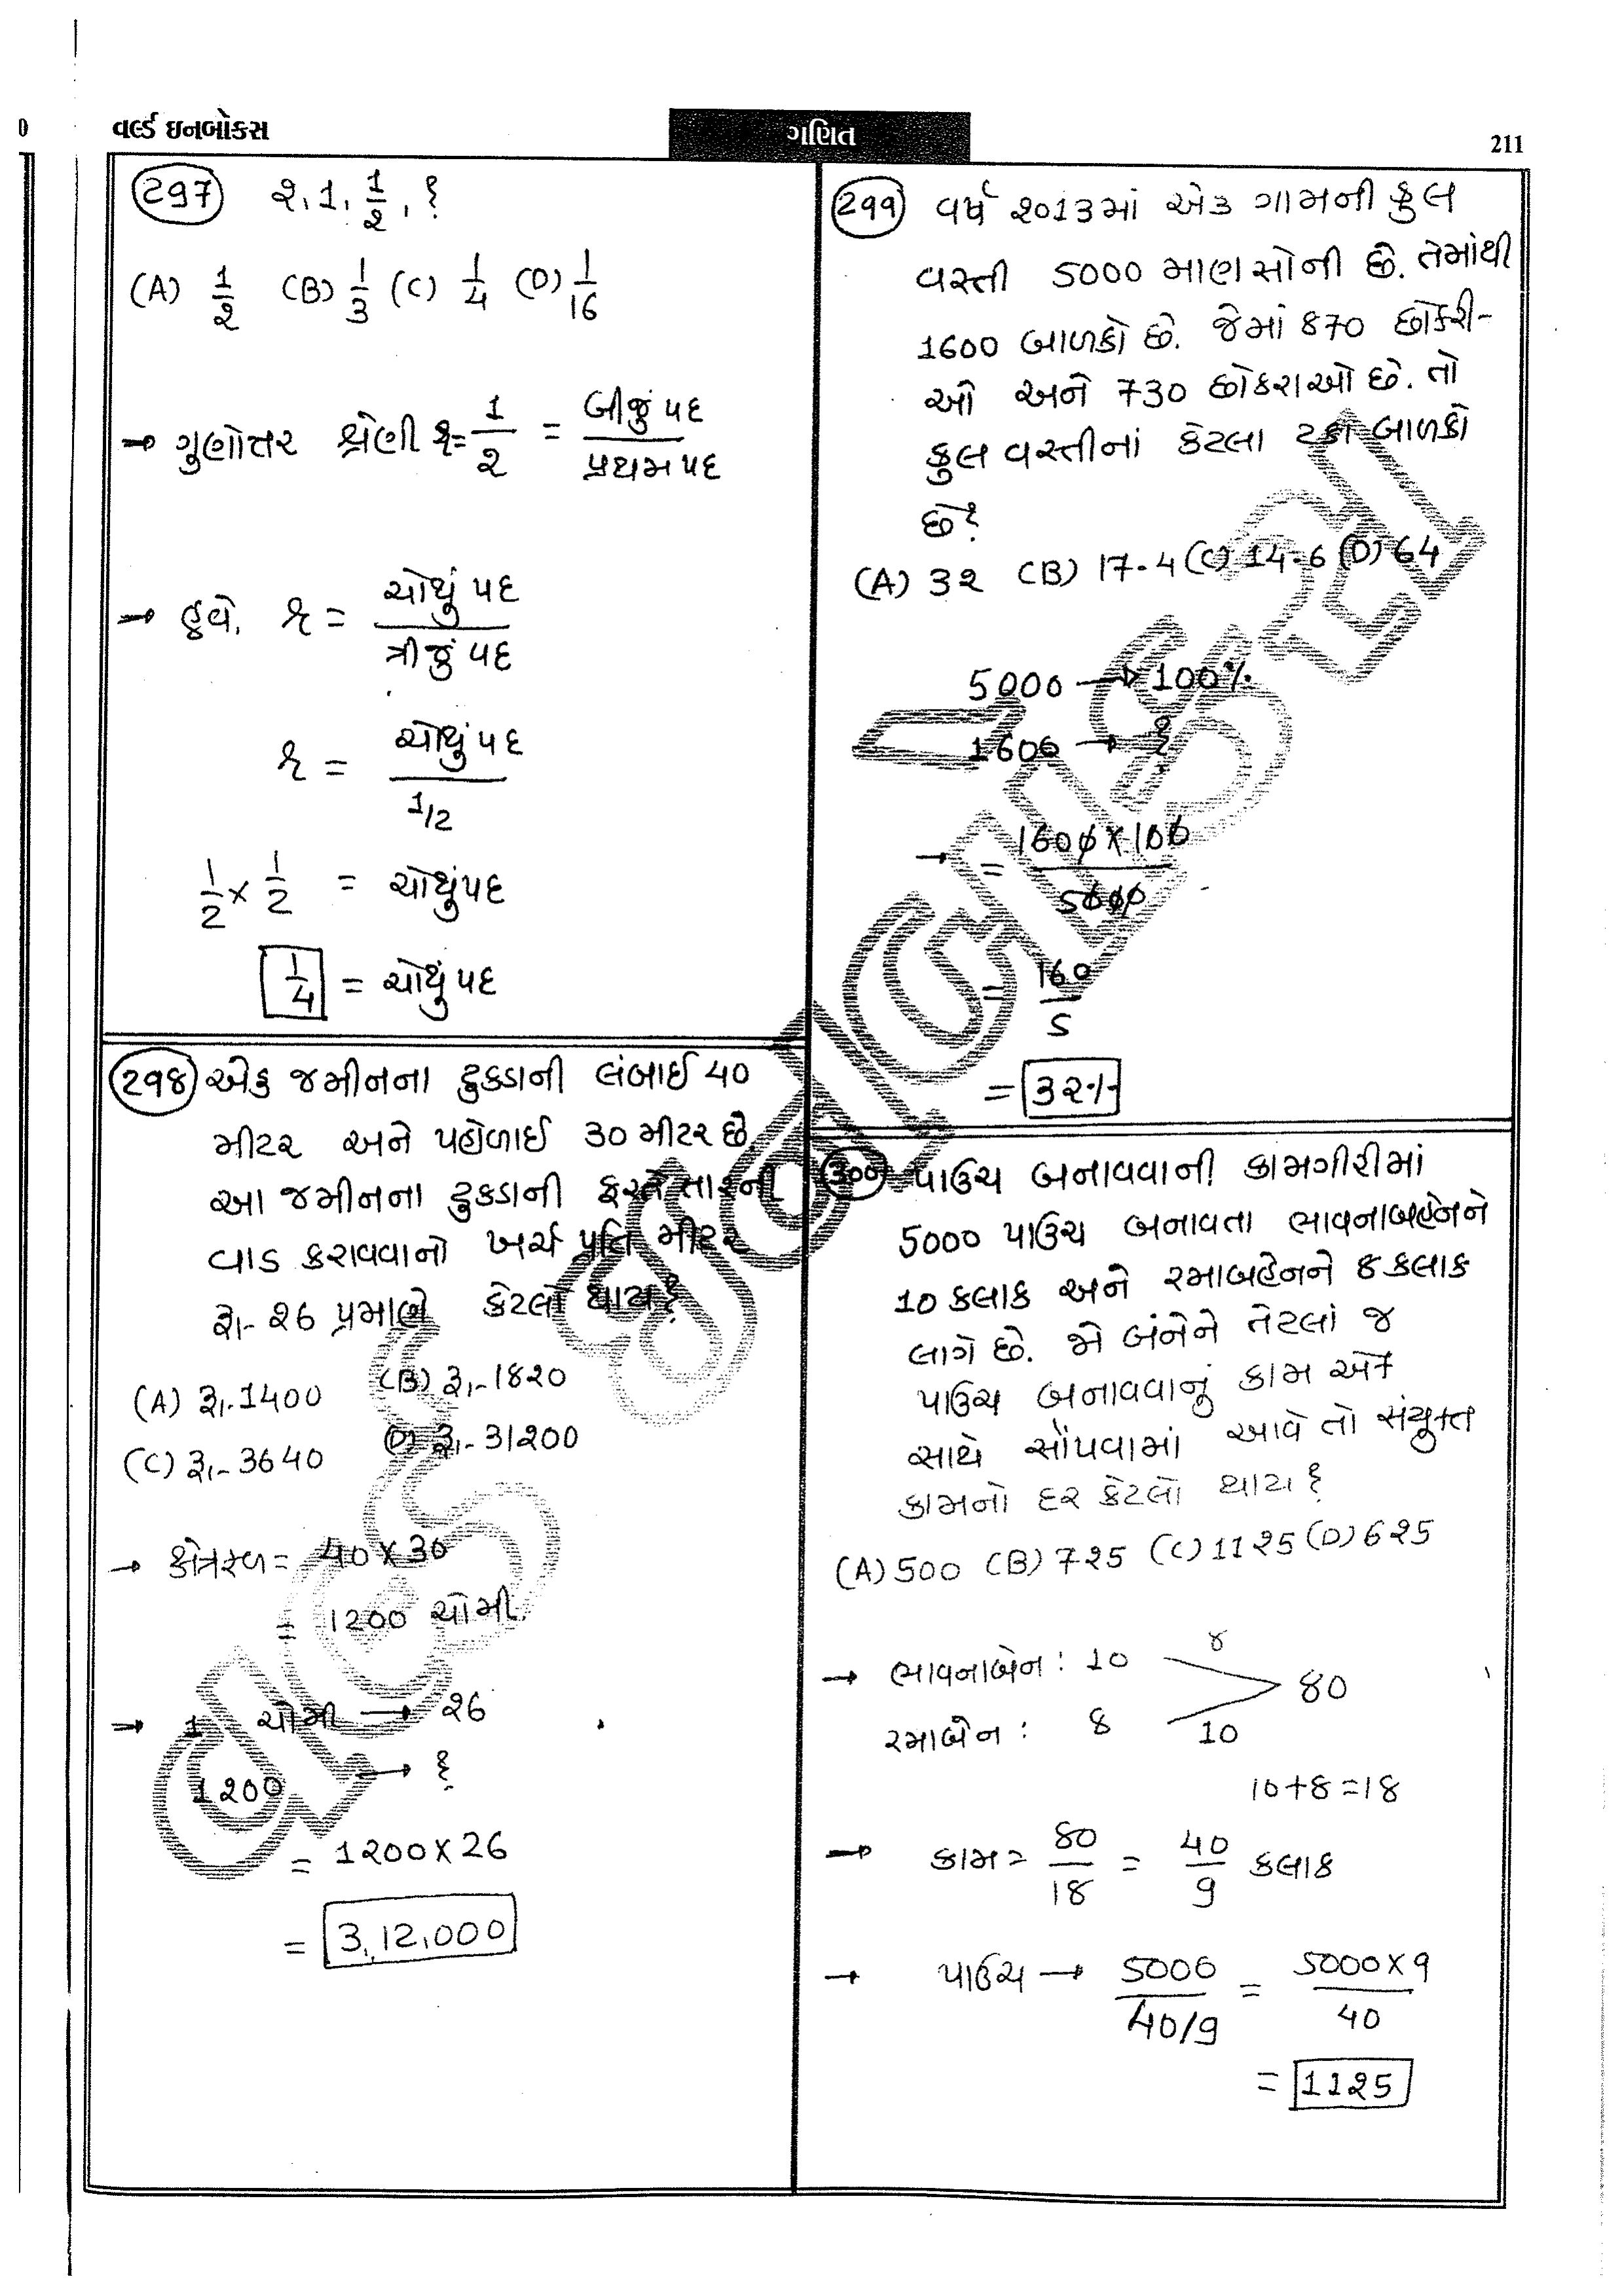 વર્લ્ડ ઇનબોક્સ
ગણિત
211
297 2, 1, 1/2, ?
(A) 1/2 (B) 1/3 (C) 1/4 (D) 1/16
→ ગુણોત્તર શ્રેણી r = 1/2 = બીજું પદ / પ્રથમ પદ
→ હવે, r = ચોથું પદ / ત્રીજું પદ
r = ચોથું પદ / 1/2
1/2 × 1/2 = ચોથું પદ
1/4 = ચોથું પદ
298 એક જમીનના ટુકડાની લંબાઈ 40
મીટર અને પહોળાઈ 30 મીટર છે.
આ જમીનના ટુકડાની ફરતે તારની
વાડ કરાવવાનો ખર્ચ પ્રતિ મીટર
રૂા.- 26 પ્રમાણે કેટલો થાય?
(A) રૂા.-1400 (B) રૂા.-1820
(C) રૂા.- 3640 (D) રૂા.- 31200
→ ક્ષેત્રફળ = 40 × 30
= 1200 ચોમી.
→ 1 ચોમી → 26
1200 → ?
= 1200 × 26
= 3,12,000
299 વર્ષ 2013માં એક ગામની કુલ
વસ્તી 5000 માણસોની છે. તેમાંથી
1600 બાળકો છે. જેમાં 870 છોકરી-
ઓ અને 730 છોકરાઓ છે. તો
કુલ વસ્તીનાં કેટલા ટકા બાળકો
છે?
(A) 32 (B) 17.4 (C) 14.6 (D) 64
5000 → 100%
1600 → ?
→ = 1600 × 100 / 5000
= 160 / 5
= 32%
300 પાઉચ બનાવવાની કામગીરીમાં
5000 પાઉચ બનાવતા ભાવનાબહેનને
10 કલાક અને રમાબહેનને 8 કલાક
લાગે છે. જો બંનેને તેટલાં જ
પાઉચ બનાવવાનું કામ એક
સાથે સોંપવામાં આવે તો સંયુક્ત
કામનો દર કેટલો થાય?
(A) 500 (B) 725 (C) 1125 (D) 625
→ ભાવનાબેન : 10 8
80
રમાબેન : 8 10
10+8=18
→ કામ = 80/18 = 40/9 કલાક
→ પાઉચ → 5000 / 40/9 = 5000 × 9 / 40
= 1125